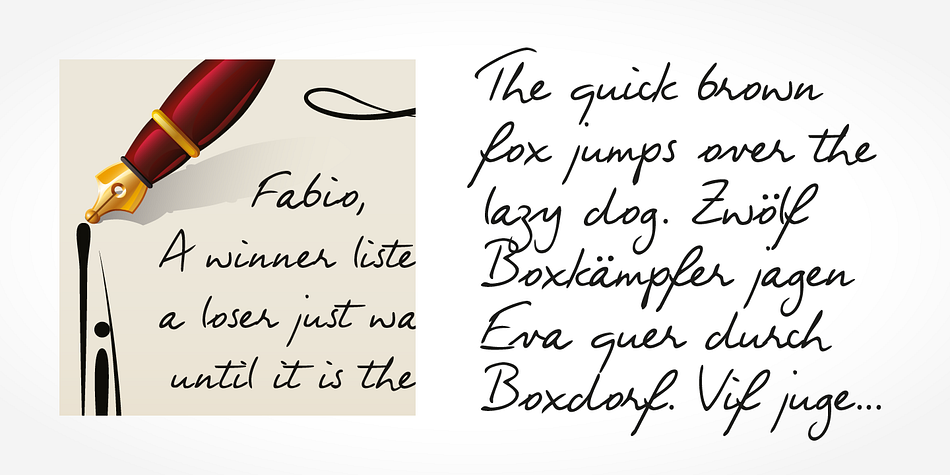 Fabio,
A winner liste
a loser just wa
until it is the
The quick brown
fox jumps over the
lazy dog. Zwölf
Boxkämpfer jagen
Eva quer durch
Boxdorf. Vif juge...